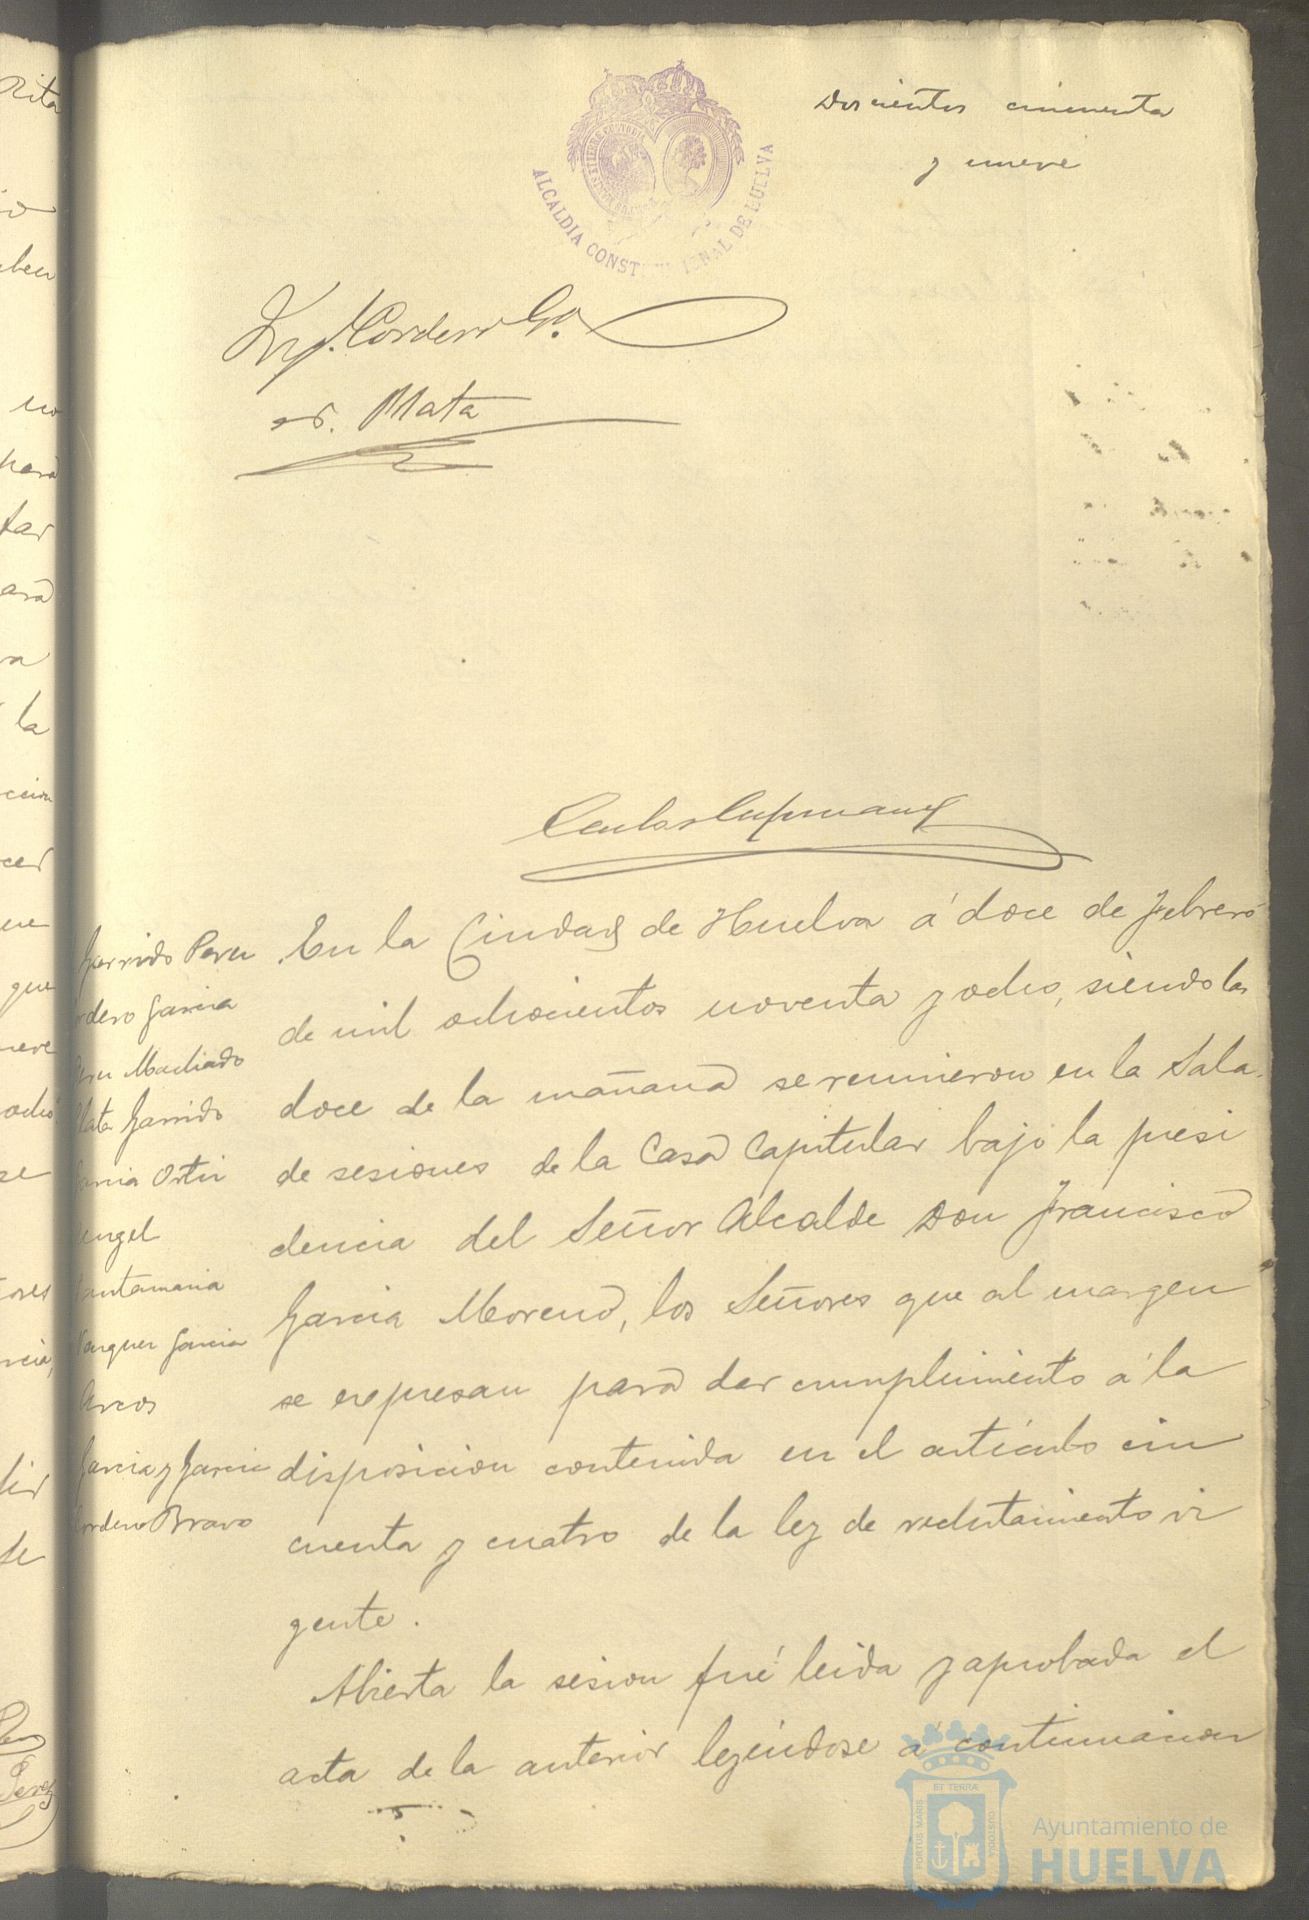 Doscientos cincuenta
y nueve
ALCALDIA CONST IONAL DE HUELVA
Cordero Ga
Mata
Carlos
Garrido Perez
dero Garcia
Machado
Mata Garrido
Garcia Ortiz
Rengel
Santamaria
Vazquez Garcia
Arcos
Garcia y Garcia
Cordero Bravo
En la Ciudad de Huelva á doce de Febrero
de mil ochocientos noventa y ocho, siendo las
doce de la mañana se reunieron en la Sala
de sesiones de la Casa Capitular bajo la presi
dencia del Señor Alcalde Don Francisco
Garcia Moreno, los Señores que al margen
se expresan para dar cumplimiento á la
disposicion contenida en el artículo cin
cuenta y cuatro de la ley de reclutamiento vi
gente.
Abierta la sesion fué leida y aprobada el
acta de la anterior leyéndose á continuacion
ET TERRÆ
PORTUS MARIS
CUSTODIA
Ayuntamiento de
HUELVA